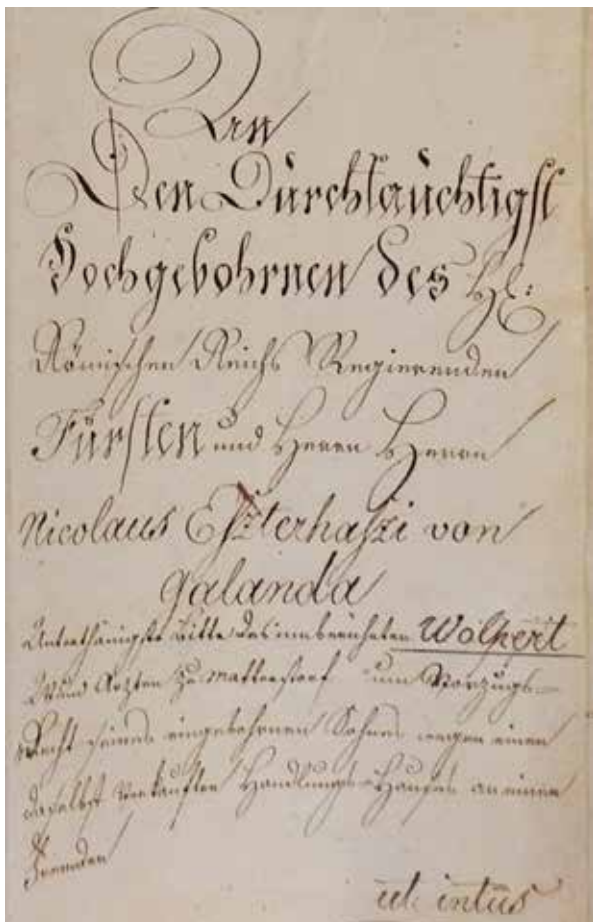 An
Den Durchlauchtigst
Hochgebohrnen des H:
Römischen Reichs Regierenden
Fürsten und Herrn Herrn
Nicolaus Eszterhaszi von
Galanda
Unterthänigste Bitte des Wolpert
Wund Arzten zu Mattersdorf um Vorzugs-
Recht seines eingebohrnen Sohnes wegen einen
daselbst verkauften Handlungs-Hauses an einen
Fremden
ut intus